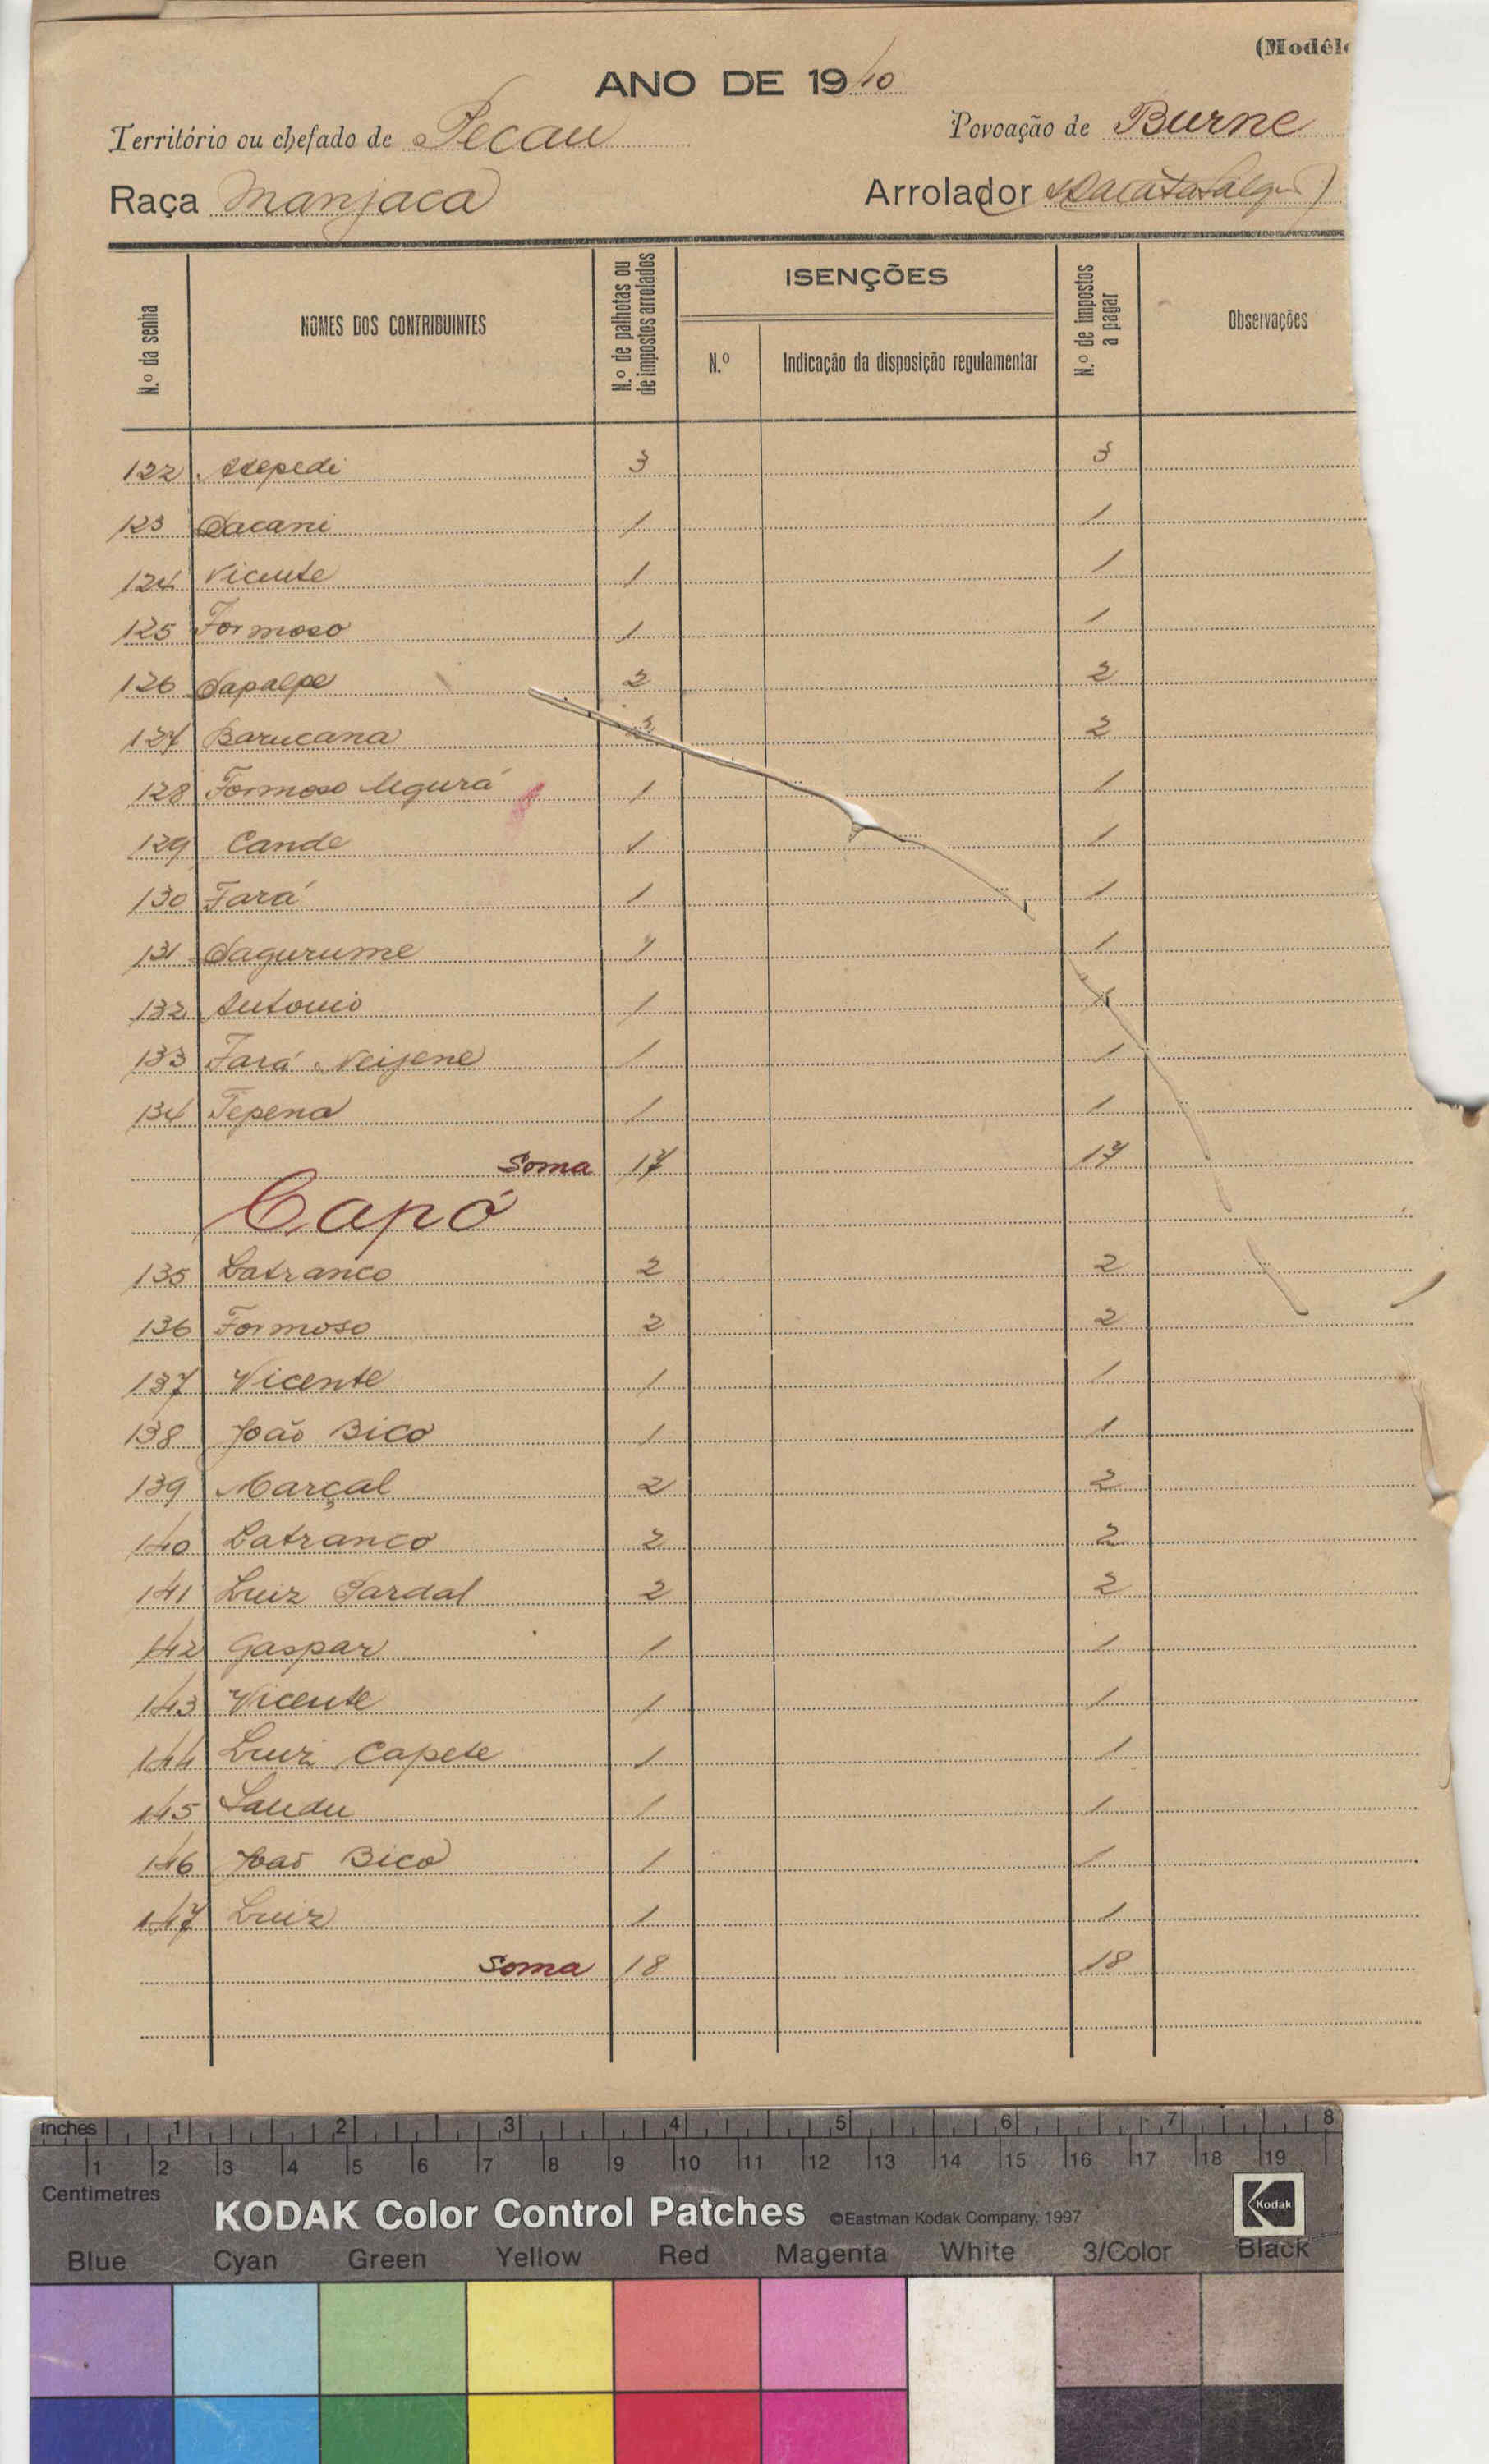 (Modêlo
ANO DE 1940
Território ou chefado de Pecau Povoação de Burne
Raça Manjaca Arrolador
N.º da senha
NOMES DOS CONTRIBUINTES
N.º de palhotas ou de impostos arrolados
ISENÇÕES
N.º
Indicação da disposição regulamentar
N.º de impostos a pagar
Observações
122 3 3
123 Dacani 1 1
124 Vicente 1 1
125 Formoso 1 1
126 Sapalpe 2 2
127 Barucana 2 2
128 Formoso Ugurá 1 1
129 Cande 1 1
130 Fará 1 1
131 Sagurume 1 1
132 Antonio 1 1
133 Fará Neijene 1 1
134 Tepena 1 1
Soma 17 17
Capó
135 Batranco 2 2
136 Formoso 2 2
137 Vicente 1 1
138 João Bico 1 1
139 Marçal 2 2
140 Batranco 2 2
141 Luiz Pardal 2 2
142 Gaspar 1 1
143 Vicente 1 1
144 Luiz Capete 1 1
145 Landu 1 1
146 João Bico 1 1
147 Luiz 1 1
Soma 18 18
Inches 1 2 3 4 5 6 7 8
1 2 3 4 5 6 7 8 9 10 11 12 13 14 15 16 17 18 19
Centimetres
KODAK Color Control Patches ©Eastman Kodak Company, 1997 Kodak
Blue Cyan Green Yellow Red Magenta White 3/Color Black